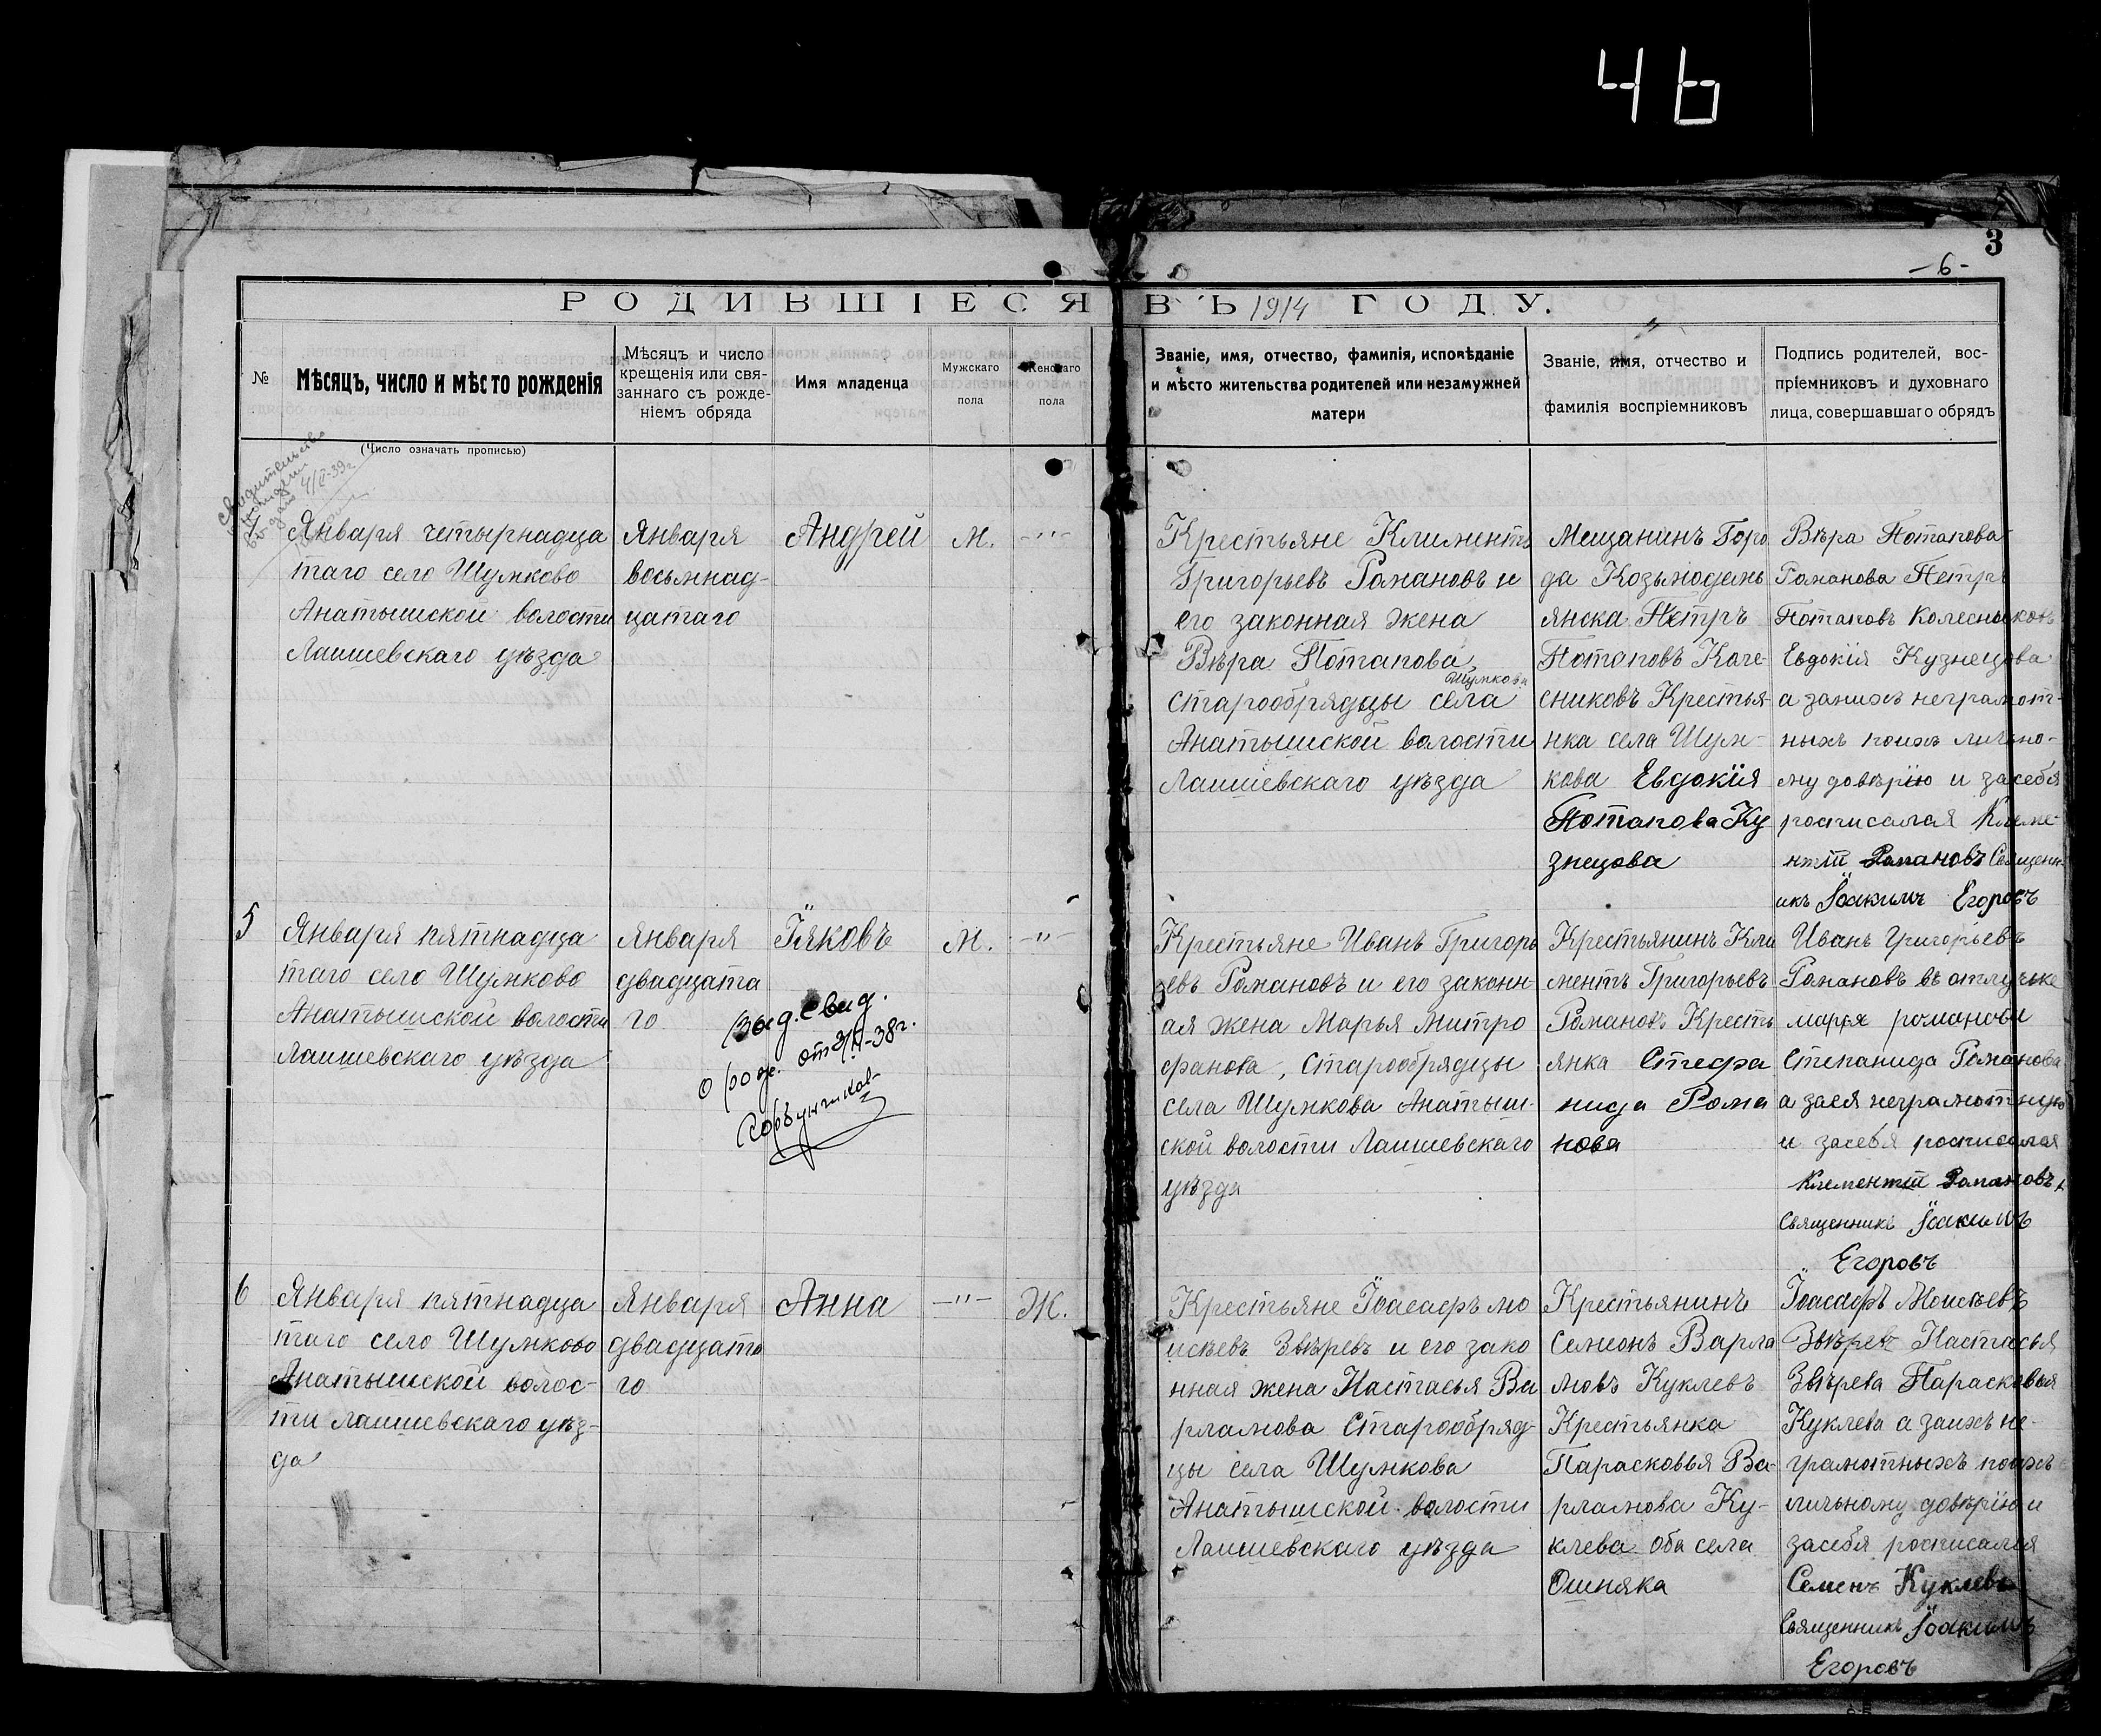 46
3
-6-
РОДИВШІЕСЯ ВЪ 1914 ГОДУ.
№
Мѣсяцъ, число и мѣсто рожденія
Мѣсяцъ и число
крещенія или свя-
заннаго съ рожде-
ніемъ обряда
Имя младенца
Мужскаго
пола
Женскаго
пола
Званіе, имя, отчество, фамилія, исповѣданіе
и мѣсто жительства родителей или незамужней
матери
Званіе, имя, отчество и
фамилія воспріемниковъ
Подпись родителей, вос-
пріемниковъ и духовнаго
лица, совершавшаго обрядъ
(Число означать прописью)
свидительство
4
Января четырнадца
таго село Шумково
Анатышской волости
Лаишевскаго уѣзда
Января
восьмнад-
цатаго
Андрей
м.
-"-
Крестьяне Климентъ
Григорьевъ Романовъ и
его законная жена
Вѣра Потапова
Шумкова
старообрядцы села
Анатышской волости
Лаишевскаго уѣзда
Мещанинъ Горо
да Козьмодемь
янска Петръ
Потаповъ Коле-
сниковъ Крестья-
нка села Шум-
кова Евдокія
Потапова Ку
знецова
Вѣра Потапова
Романова Петръ
Потаповъ Колесниковъ
Евдокія Кузнецова
а занихъ неграмот-
ныхъ поихъ лично-
му довѣрію и засебя
росписался Клеме-
нтій Романовъ Священн-
икъ Іоакимъ Егоровъ
5
Января пятнадца
таго село Шумково
Анатышской волости
Лаишевскаго уѣзда
Января
двадцата
го
Іяковъ
м.
-"-
Выд. свид.
о рожд.
Крестьяне Иванъ Григорь
евъ Романовъ и его законн-
ая жена Марья Митро
фанова, Старообрядцы
села Шумкова Анатыш-
ской волости Лаишевскаго
уѣзда
Крестьянинъ Кли
ментъ Григорьевъ
Романовъ Кресть
янка Стефа
нида Рома
нова
Иванъ Григорьевъ
Романовъ въ отлучьке
марья романова
Степанида Романова
а заея неграмотную
и засебя росписался
Клементій Романовъ,
Священникъ Іоакимъ
Егоровъ
6
Января пятнадца
таго село Шумково
Анатышской волос-
ти Лаишевскаго уѣз-
да
Января
двадцато
го
Анна
-"-
Ж.
Крестьяне Іоасафъ мо
исѣевъ Звѣревъ и его зако
нная жена Настасья Ва
рламова Старообряд-
цы села Шумкова
Анатышской волости
Лаишевскаго уѣзда
Крестьянинъ
Семионъ Варла
мовъ Куклевъ
Крестьянка
Парасковья Ва-
рламова Ку-
клева оба села
Ошняка
Іоасафъ Моисѣевъ
Звѣревъ Настасья
Звѣрева Парасковья
Куклева а заихъ не-
грамотныхъ поихъ
личьному довѣрію и
засебя росписался
Семенъ Куклевъ
Священникъ Іоакимъ
Егоровъ